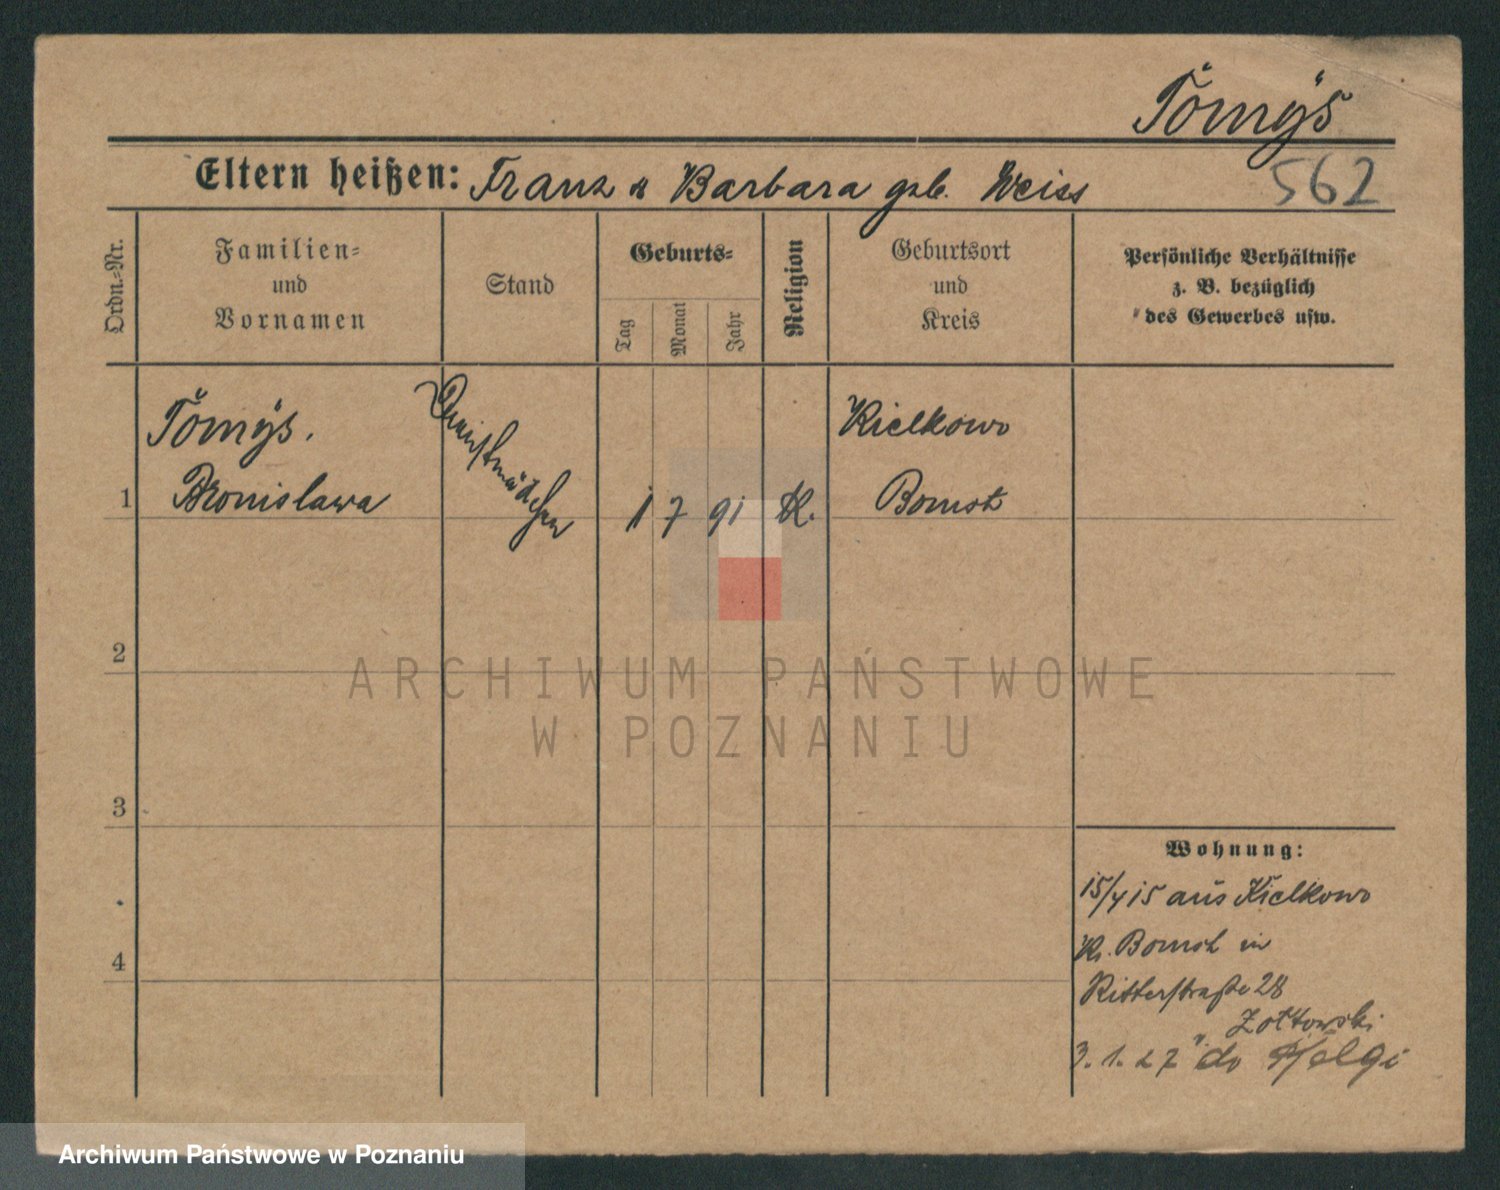 Tomys
Eltern heißen: Franz u Barbara geb. Weiss
562
Ordn.=Nr.
Familien=
und
Vornamen
Stand
Geburts=
Tag
Monat
Jahr
Religion
Geburtsort
und
Kreis
Persönliche Verhältnisse
z. B. bezüglich
des Gewerbes usw.
Tomys.
Bronislawa
Dienstmädchen
1
1 7 91 K.
Kielkowo
Bomst
2
3
4
Wohnung:
15/4 15 aus Kielkowo
Kr. Bomst in
Ritterstraße 28
Żółtowski
3.1.27 do
ARCHIWUM PAŃSTWOWE
W POZNANIU
Archiwum Państwowe w Poznaniu